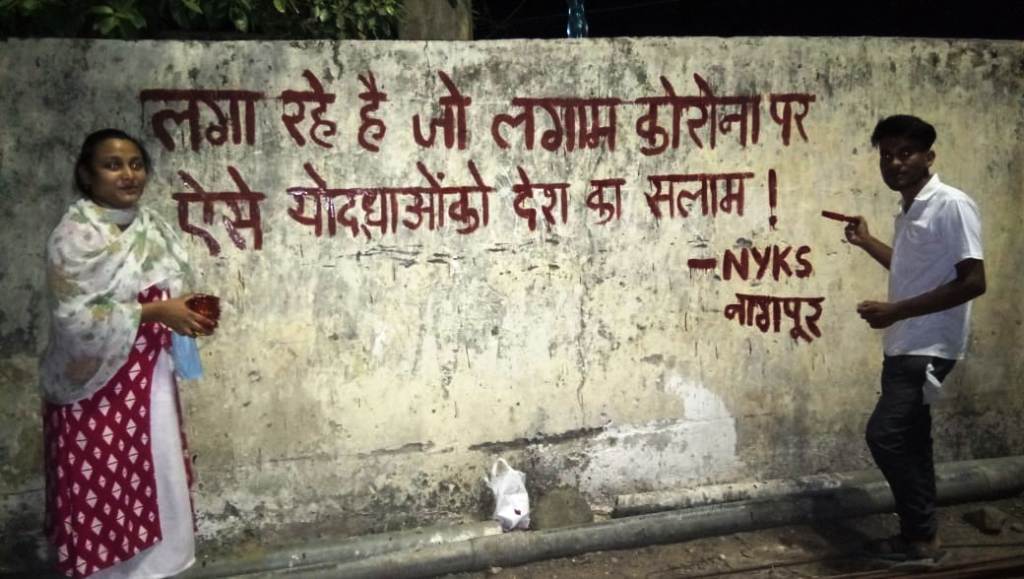 लगा रहे है जो लगाम कोरोना पर
ऐसे योदधाओंको देश का सलाम !
- NYKS
नागपूर